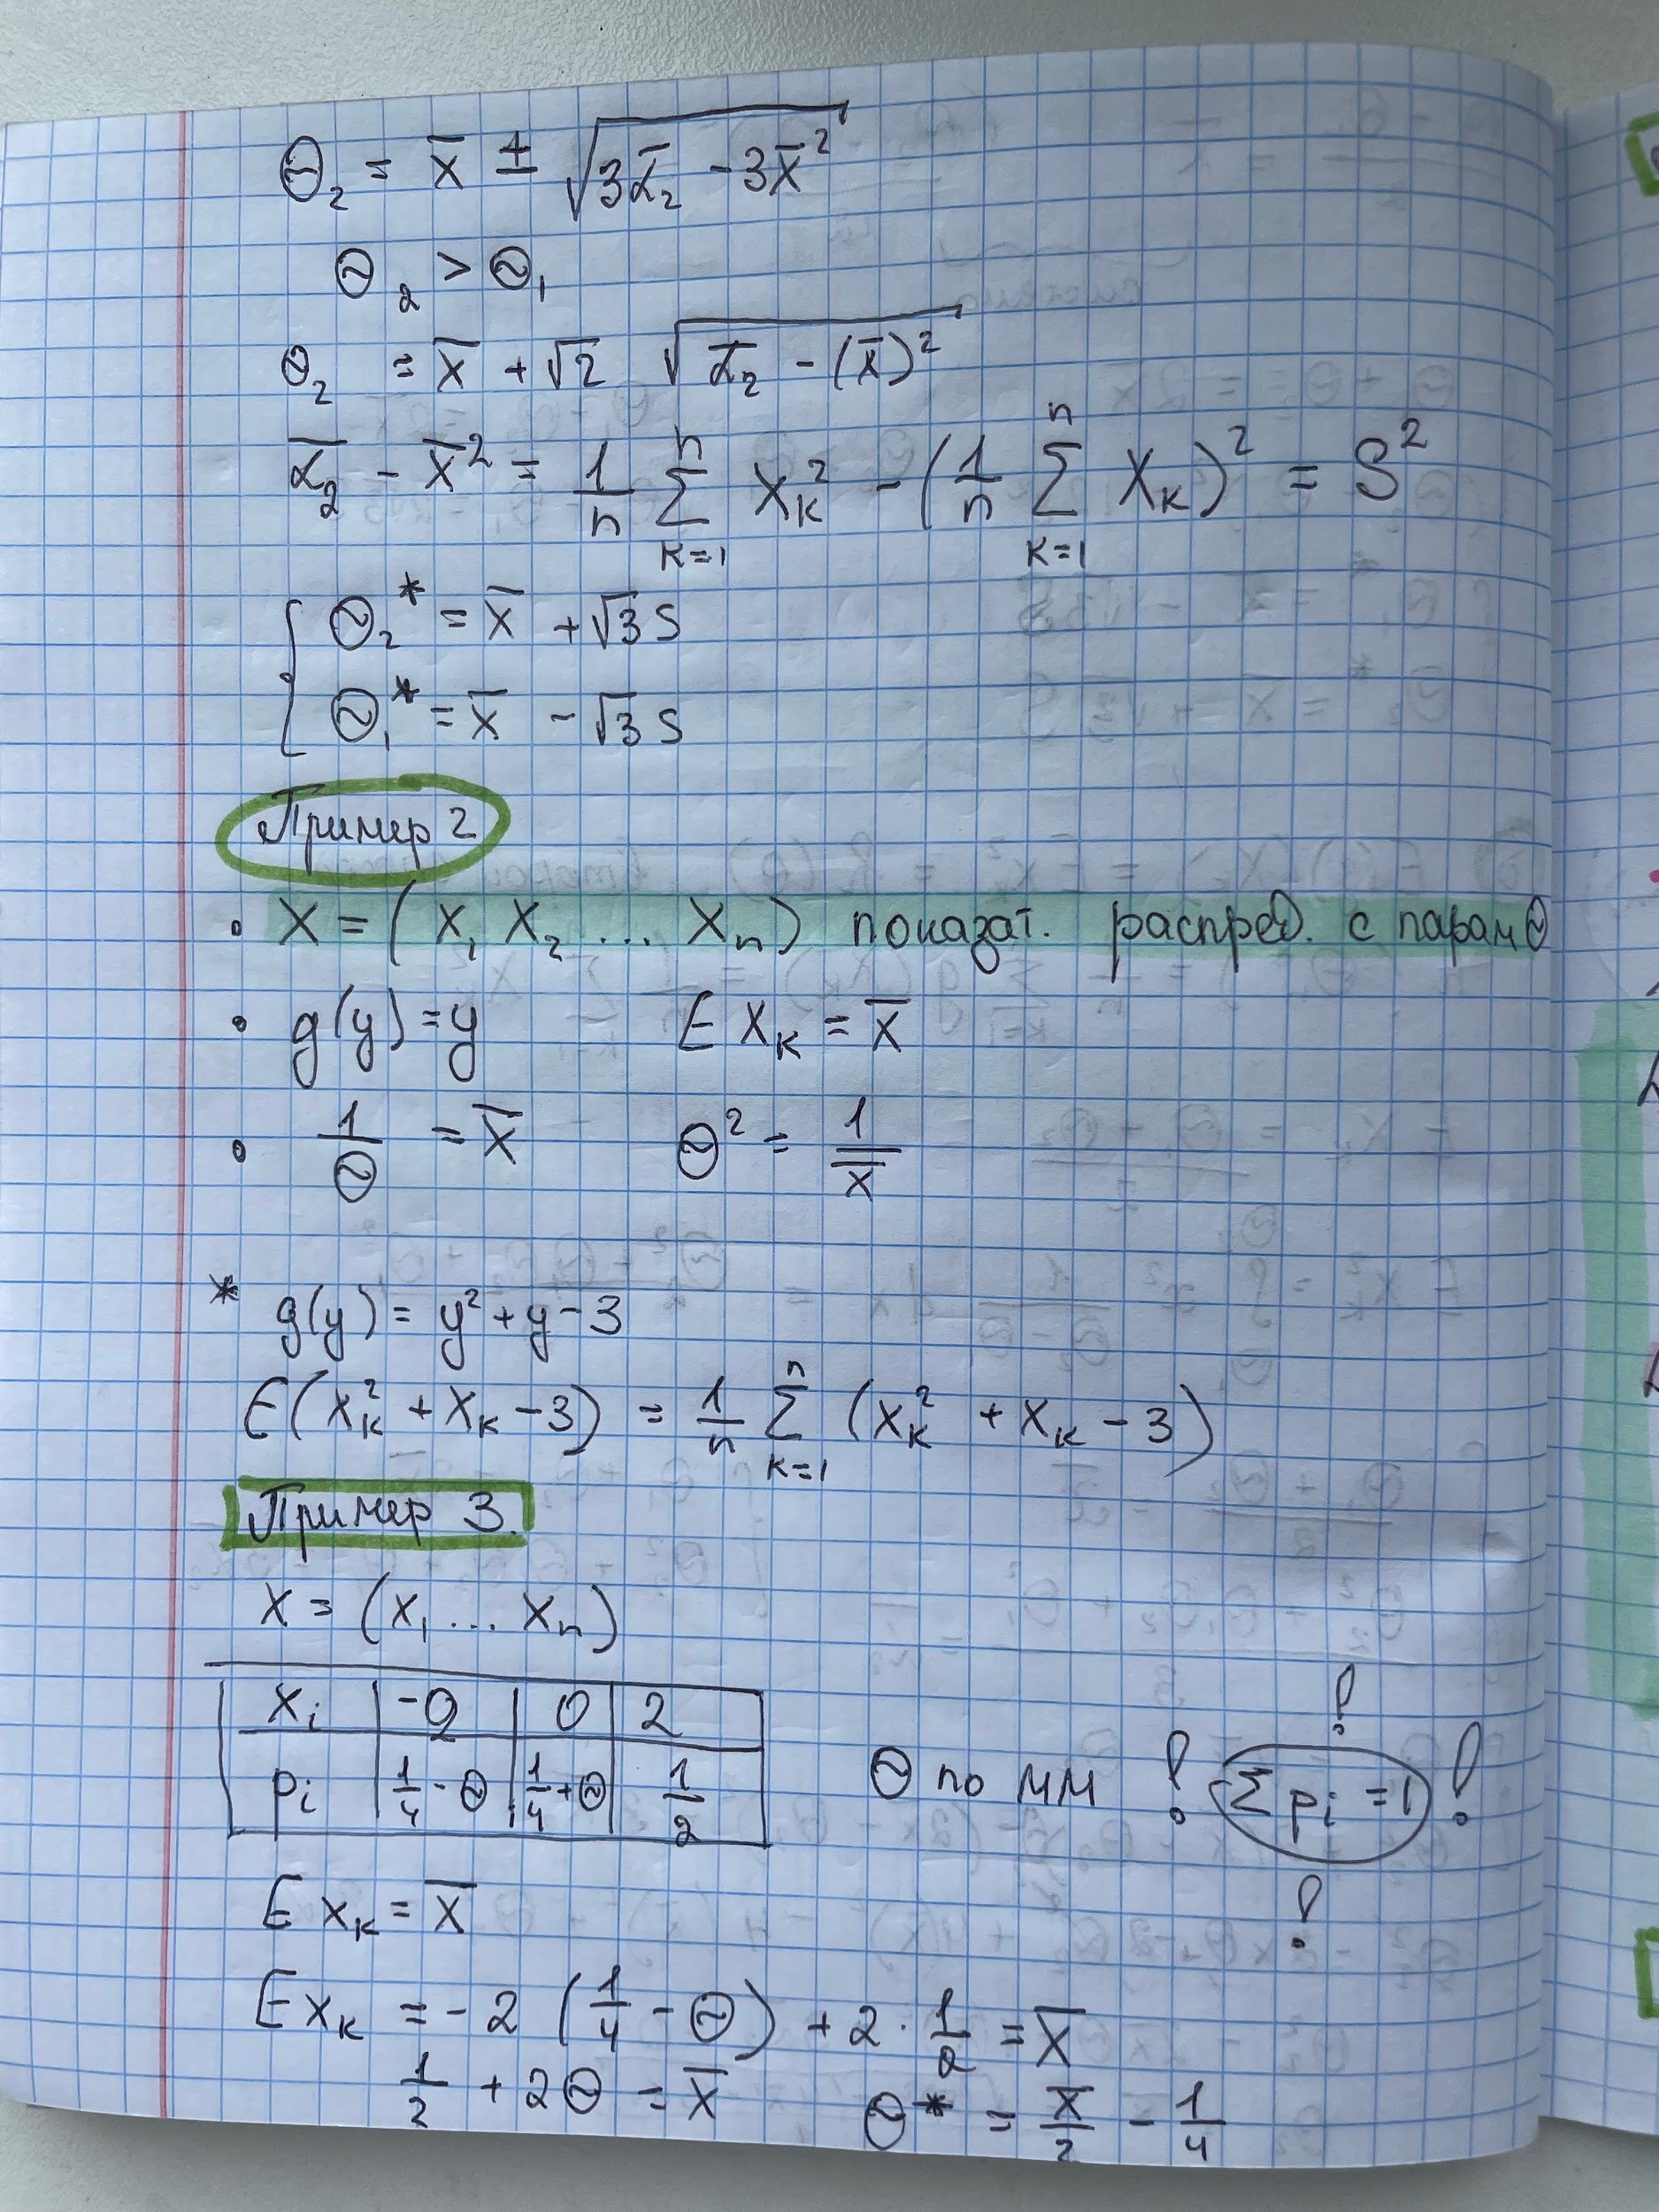 Θ₂ = x̄ ± √(3α̅₂ - 3x̄²)
Θ₂ > Θ₁
Θ₂ = x̄ + √2 √(α̅₂ - (x̄)²)
α̅₂ - x̄² = 1/n ∑ₖ₌₁ⁿ Xₖ² - (1/n ∑ₖ₌₁ⁿ Xₖ)² = S²
{ Θ₂* = x̄ + √3 S
Θ₁* = x̄ - √3 S
Пример 2
• X = (X₁ X₂ ... Xₙ) показат. распред. с парам Θ
• g(y) = y E Xₖ = x̄
• 1/Θ = x̄ Θ² = 1/x̄
* g(y) = y² + y - 3
E(Xₖ² + Xₖ - 3) = 1/n ∑ₖ₌₁ⁿ (Xₖ² + Xₖ - 3)
Пример 3.
X = (X₁ ... Xₙ)
Xᵢ | -2 | 0 | 2
pᵢ | 1/4 - Θ | 1/4 + Θ | 1/2 Θ по мм ! ! ∑ pᵢ = 1 ! !
E Xₖ = x̄
E Xₖ = -2 (1/4 - Θ) + 2 · 1/2 = x̄
1/2 + 2Θ = x̄ Θ* = x̄/2 - 1/4